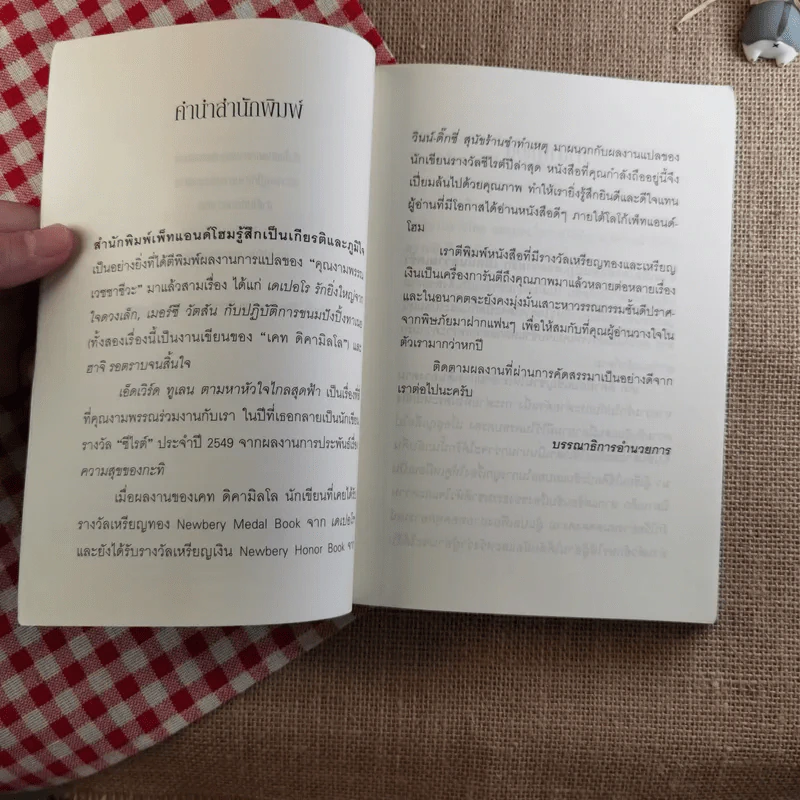 คำนำสำนักพิมพ์
สำนักพิมพ์เพ็ทแอนด์โฮมรู้สึกเป็นเกียรติและภูมิใจ
เป็นอย่างยิ่งที่ได้ตีพิมพ์ผลงานการแปลของ “คุณงามพรรณ
เวชชาชีวะ” มาแล้วสามเรื่อง ได้แก่ เดเปอโร รักยิ่งใหญ่จาก
ใจดวงเล็ก, เมอร์ซี วัตสัน กับปฏิบัติการขนมปังปิ้งทาเนย
(ทั้งสองเรื่องนี้เป็นงานเขียนของ “เคท ดิคามิลโล”) และ
ฮาจิ รอตราบจนสิ้นใจ
เอ็ดเวิร์ด ทูเลน ตามหาหัวใจไกลสุดฟ้า เป็นเรื่องที่สี่
ที่คุณงามพรรณร่วมงานกับเรา ในปีที่เธอกลายเป็นนักเขียน
รางวัล “ซีไรต์” ประจำปี 2549 จากผลงานการประพันธ์เรื่อง
ความสุขของกะทิ
เมื่อผลงานของเคท ดิคามิลโล นักเขียนที่เคยได้รับ
รางวัลเหรียญทอง Newbery Medal Book จาก เดเปอโร
และยังได้รับรางวัลเหรียญเงิน Newbery Honor Book จาก
วินน์-ดิ๊กซี่ สุนัขร้านชำทำเหตุ มาผนวกกับผลงานแปลของ
นักเขียนรางวัลซีไรต์ปีล่าสุด หนังสือที่คุณกำลังถืออยู่นี้จึง
เปี่ยมล้นไปด้วยคุณภาพ ทำให้เรายิ่งรู้สึกยินดีและดีใจแทน
ผู้อ่านที่มีโอกาสได้อ่านหนังสือดีๆ ภายใต้โลโก้เพ็ทแอนด์-
โฮม
เราตีพิมพ์หนังสือที่มีรางวัลเหรียญทองและเหรียญ
เงินเป็นเครื่องการันตีถึงคุณภาพมาแล้วหลายต่อหลายเรื่อง
และในอนาคตจะยังคงมุ่งมั่นเสาะหาวรรณกรรมชั้นดีปราศ-
จากพิษภัยมาฝากแฟนๆ เพื่อให้สมกับที่คุณผู้อ่านวางใจใน
ตัวเรามากว่าหกปี
ติดตามผลงานที่ผ่านการคัดสรรมาเป็นอย่างดีจาก
เราต่อไปนะครับ
บรรณาธิการอำนวยการ